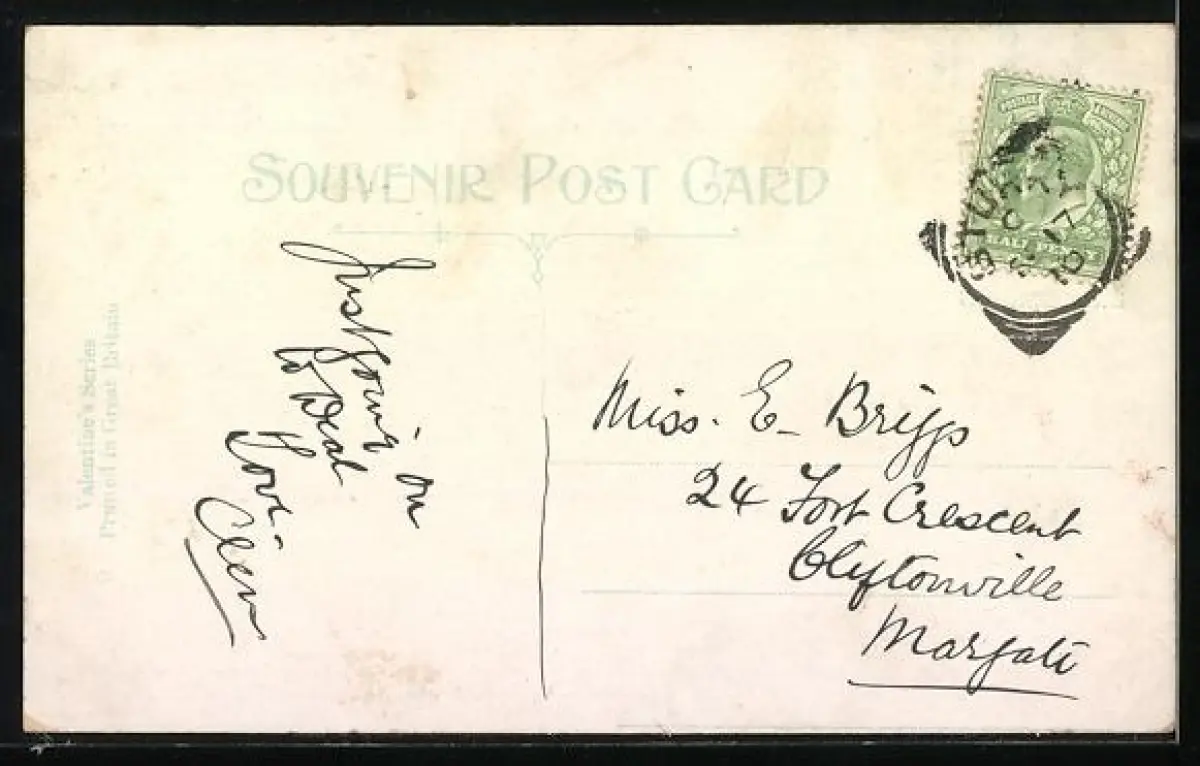 SOUVENIR POST CARD
Valentine's Series
Printed in Great Britain
Just goin' on
to Deal
Love
Miss. E. Briggs
24 Fort Crescent
Cliftonville
Margate
STUR
17
10
HALF PENNY